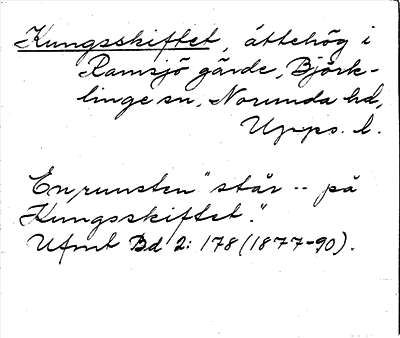 Kungsskiftet, ättehög i
Ramsjö gärde, Björk-
linge sn, Norunda hd,
Upps. l.
En runsten "står -- på
Kungsskiftet."
Ufmt Bd 2: 178 (1877-90).